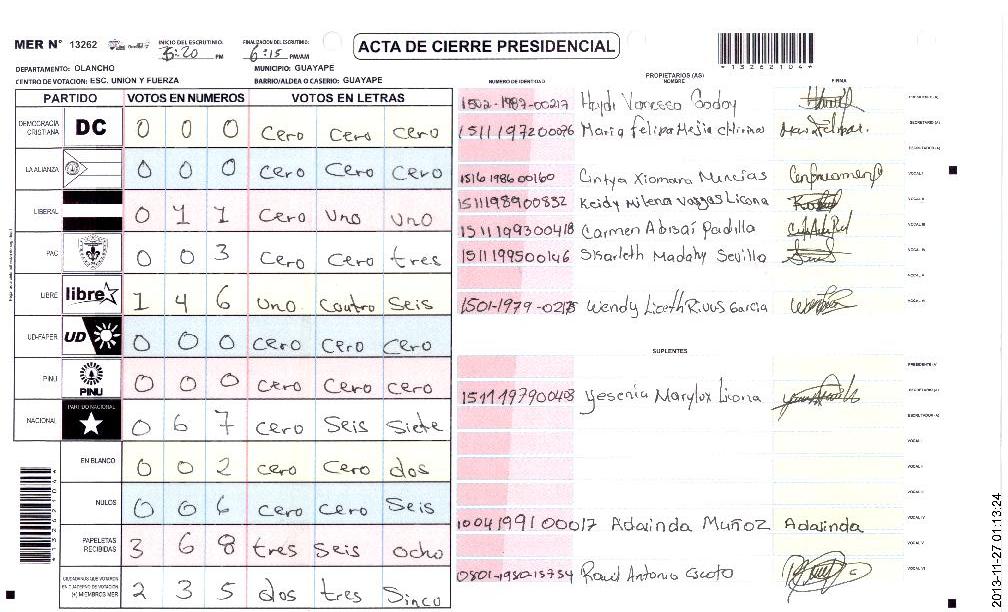 MER N° 13262 INICIO DEL ESCRUTINIO: 5:20 PM FINALIZACION DEL ESCRUTINIO: 6:15 PM/AM ACTA DE CIERRE PRESIDENCIAL
*13262104*
DEPARTAMENTO: OLANCHO MUNICIPIO: GUAYAPE
CENTRO DE VOTACION: ESC. UNION Y FUERZA BARRIO/ALDEA O CASERIO: GUAYAPE
PARTIDO VOTOS EN NUMEROS VOTOS EN LETRAS
DEMOCRACIA CRISTIANA DC 0 0 0 Cero Cero Cero
LA ALIANZA 0 0 0 Cero Cero Cero
LIBERAL 0 1 1 Cero Uno Uno
PAC 0 0 3 Cero Cero tres
LIBRE libre 1 4 6 Uno Cautro Seis
UD-FAPER UD 0 0 0 Cero Cero Cero
PINU PINU 0 0 0 Cero Cero Cero
NACIONAL PARTIDO NACIONAL 0 6 7 Cero Seis Siete
EN BLANCO 0 0 2 Cero Cero dos
NULOS 0 0 6 Cero Cero Seis
PAPELETAS RECIBIDAS 3 6 8 tres Seis Ocho
CIUDADANOS QUE VOTARON EN CUADERNO DE VOTACION (+) MIEMBROS MER 2 3 5 dos tres Sinco
PROPIETARIOS (AS)
NUMERO DE IDENTIDAD NOMBRE FIRMA
1502-1987-00217 Haydi Vanessa Godoy
1511197200076 Maria Felipa Mejia
1516 1986 00160 Cintya Xiomara
1511198900832 Keidy Milena Vargas Licona
1511199300418 Carmen Abisaí Padilla
1511199500146 Sisarleth Madahy Sevilla
1501-1979-02175 Wendy Liceth Rivas Garcia
SUPLENTES
1511197900408 Yesenia Marylux Licona
1004199100017 Adainda Muñoz Adainda
0801-1980-15754 Raul Antonio Escoto
2013-11-27 01:13:24